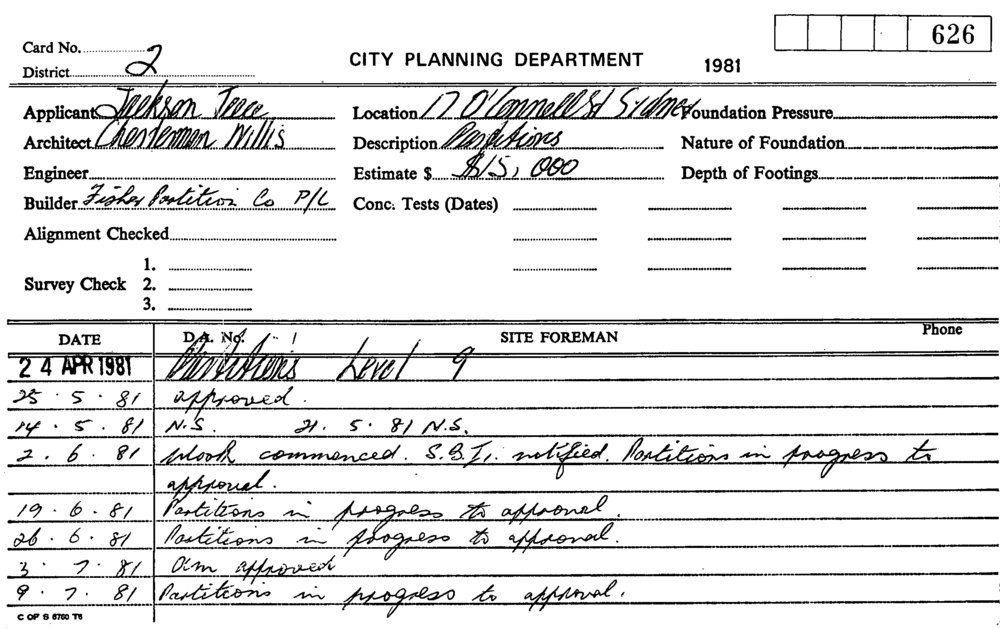 626
Card No. 2
CITY PLANNING DEPARTMENT 1981
District
Applicant Jackson Teece Location 17 O'Connell St Sydney Foundation Pressure
Architect Chesterman Willis Description Partitions Nature of Foundation
Engineer Estimate $ $15,000 Depth of Footings
Builder Fisher Partition Co P/L Conc. Tests (Dates)
Alignment Checked
1.
Survey Check 2.
3.
DATE D.A. No. SITE FOREMAN Phone
24 APR 1981 Partitions Level 9
25.5.81 approved.
14.5.81 N.S. 21.5.81 N.S.
2.6.81 Work commenced. S.B.I. notified. Partitions in progress to
approval.
19.6.81 Partitions in progress to approval.
26.6.81 Partitions in progress to approval.
3.7.81 approved
9.7.81 Partitions in progress to approval.
C OF S 6760 T6